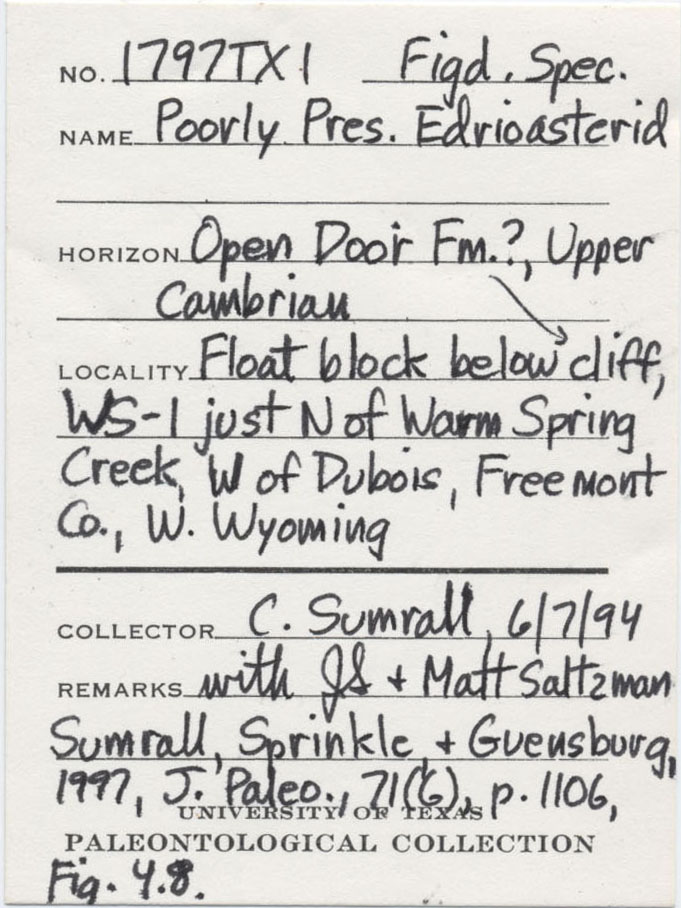 NO. 1797TX1 Figd. Spec.
NAME Poorly Pres. Edrioasterid
HORIZON Open Door Fm.?, Upper
Cambrian
LOCALITY Float block below cliff,
WS-1 just N of Warm Spring
Creek, W of Dubois, Freemont
Co., W. Wyoming
COLLECTOR C. Sumrall, 6/7/94
REMARKS with JS + Matt Saltzman
Sumrall, Sprinkle, + Guensburg,
1997, J. Paleo., 71(6), p. 1106,
UNIVERSITY OF TEXAS
PALEONTOLOGICAL COLLECTION
Fig. 4.8.